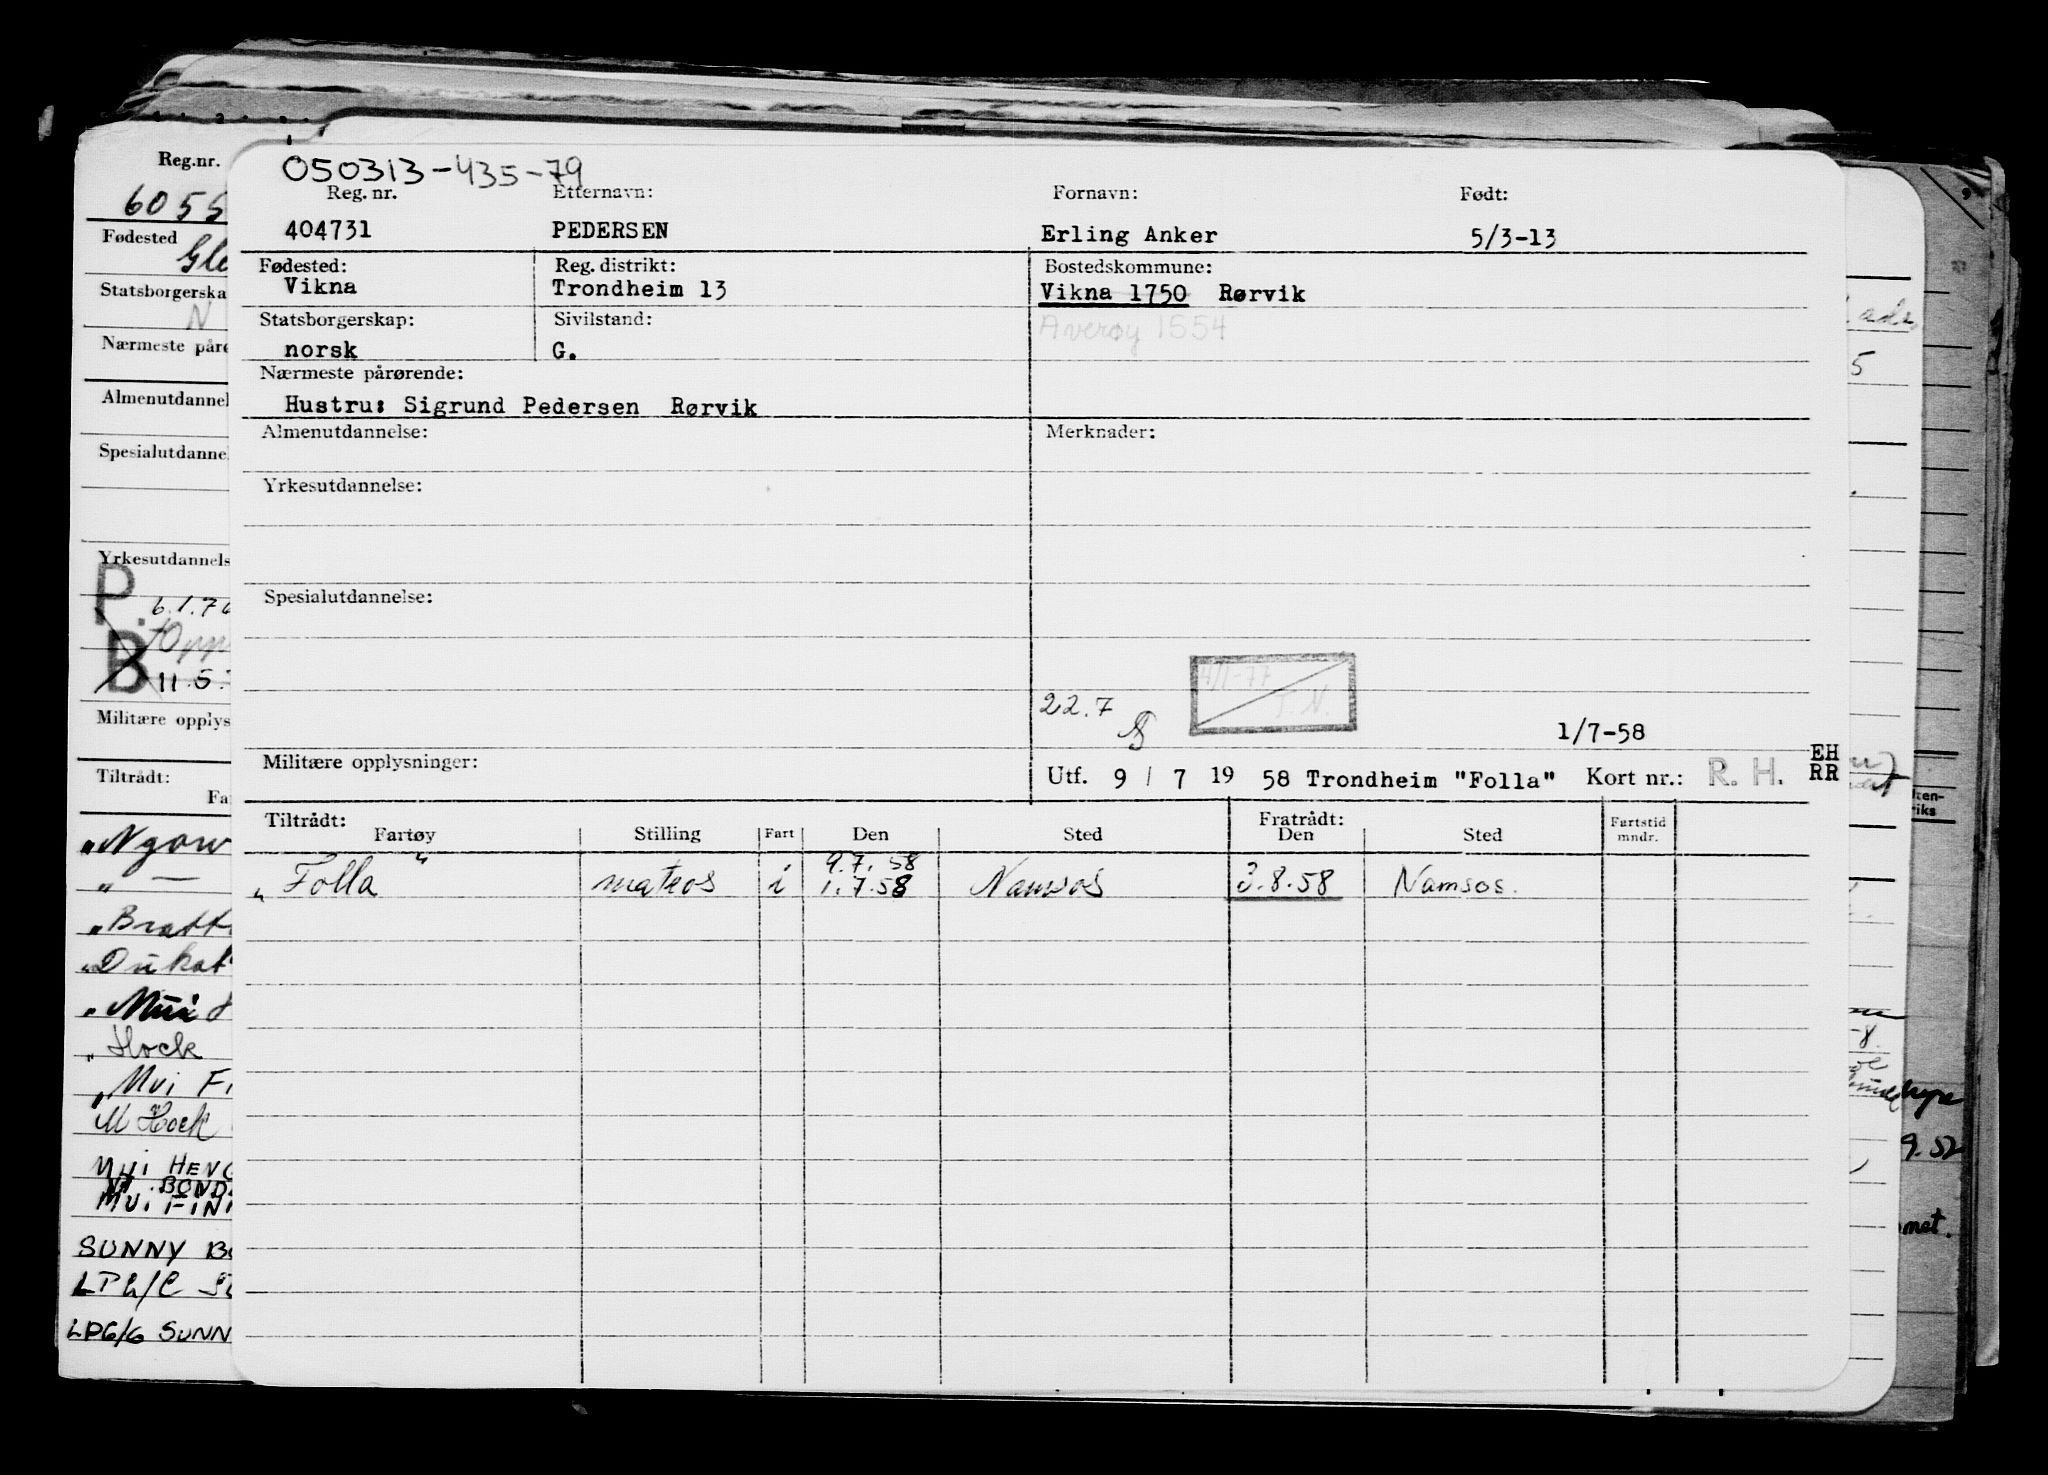 050313-435-79
Reg. nr. Etternavn: Fornavn: Født:
404731 PEDERSEN Erling Anker 5/3-13
Fødested: Reg. distrikt: Bostedskommune:
Vikna Trondheim 13 Vikna 1750 Rørvik
Statsborgerskap: Sivilstand: Averøy 1554
norsk G.
Nærmeste pårørende:
Hustru: Sigrund Pedersen Rørvik
Almenutdannelse: Merknader:
Yrkesutdannelse:
Spesialutdannelse:
4/1-77
T.N.
22.7
1/7-58
Militære opplysninger: Utf. 9 / 7 19 58 Trondheim "Folla" Kort nr.: R. H. EH
RR
Tiltrådt: Fratrådt:
Fartøy Stilling Fart Den Sted Den Sted Fartstid
mndr.
9.7.58
"Folla" matros i 1.7.58 Namsos 3.8.58 Namsos.
Reg.nr.
6055
Fødested
Gle
Statsborgerska
N
Nærmeste påre
Almenutdannel
Spesialutdannel
Yrkesutdannels
P.
6.1.76
Opp
B
11.5.
Militære opplys
Tiltrådt:
Fa
"Ngow
" —
"Bratt
"Dukat
"Mui
"Hock
"Mvi Fi
M Hock
MVI HENG
BOND
MVI FIN
SUNNY BO
LPG/C SU
LPG/G SUNN
5
ken-
riks
9.52
met.